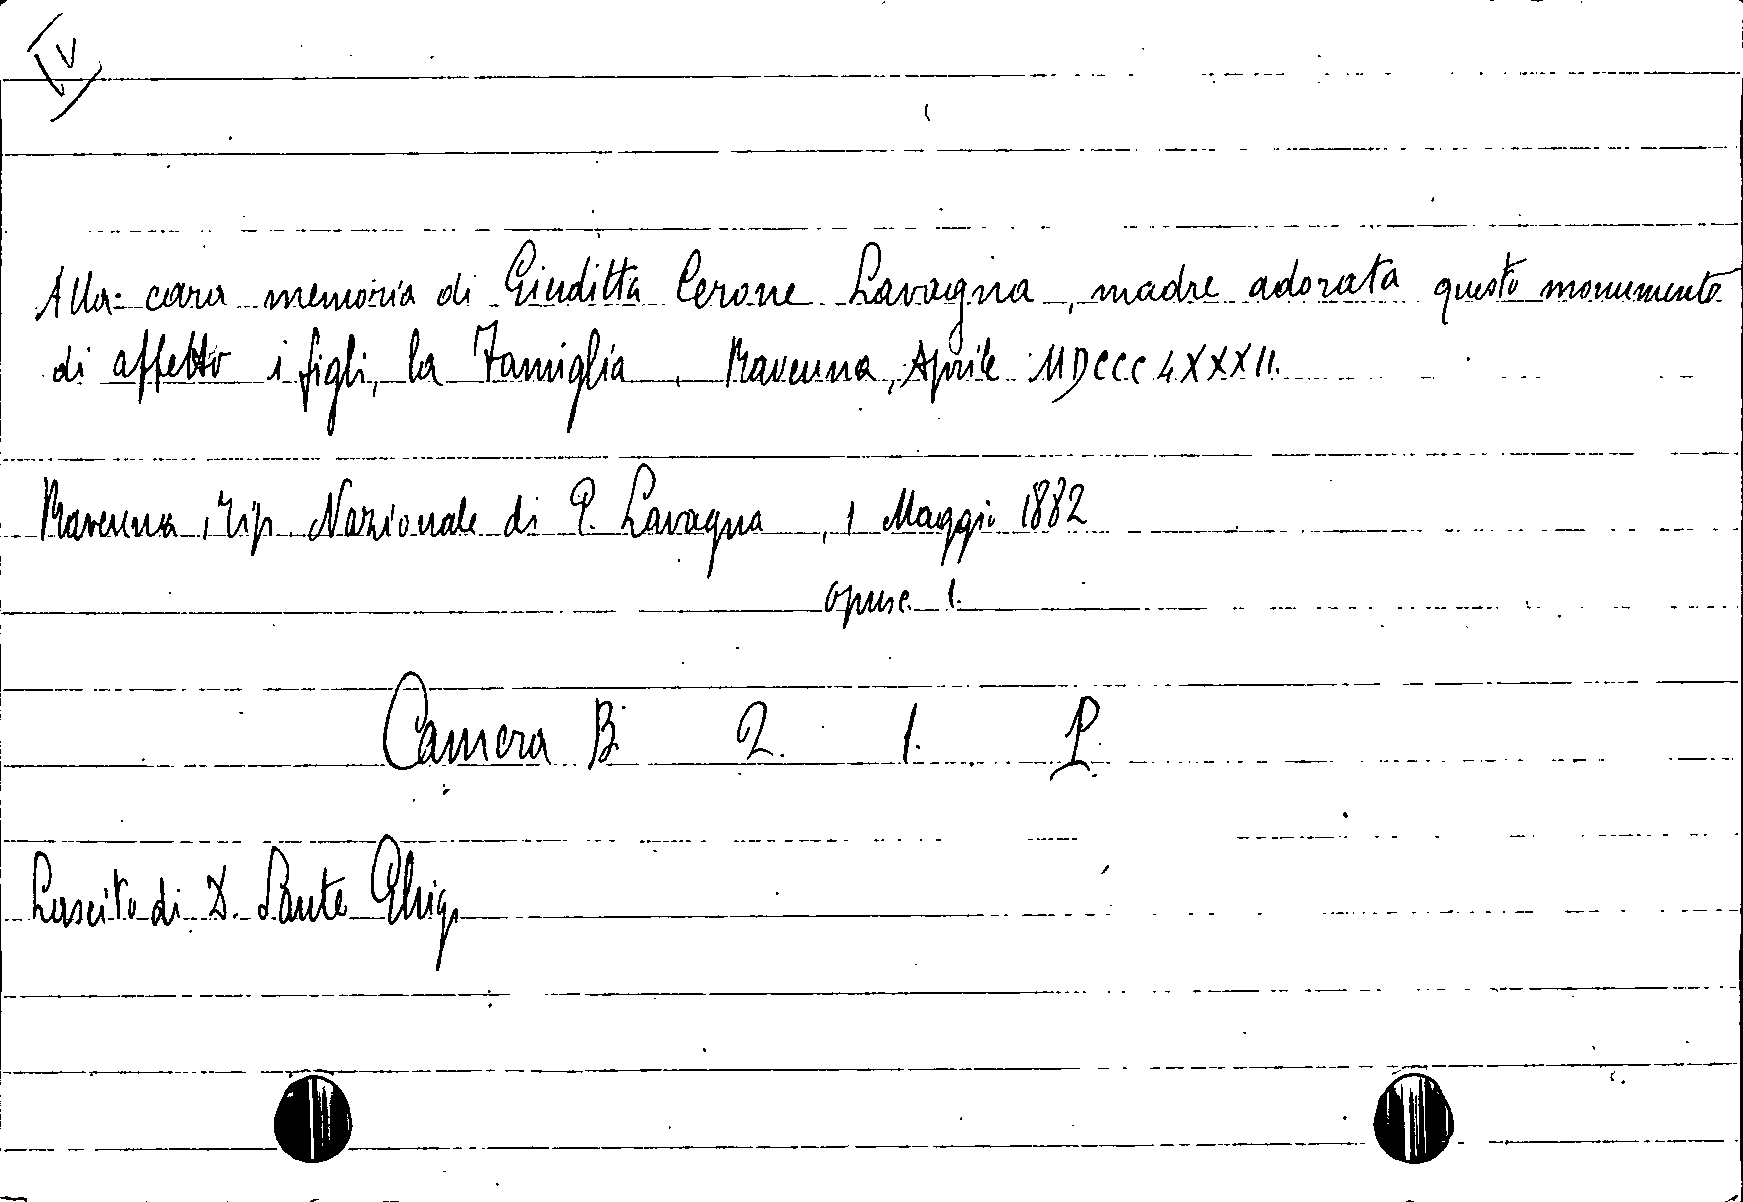 IV
Alla cara memoria di Giuditta Cerone Lavagna, madre adorata questo monumento
di affetto i figli, la Famiglia. Ravenna, Aprile MDCCCLXXXII.
Ravenna, Tip. Nazionale di P. Lavagna, 1 Maggio 1882
opusc. 1.
Camera B. 2. 1. P.
Lascito di D. Sante Ghigi